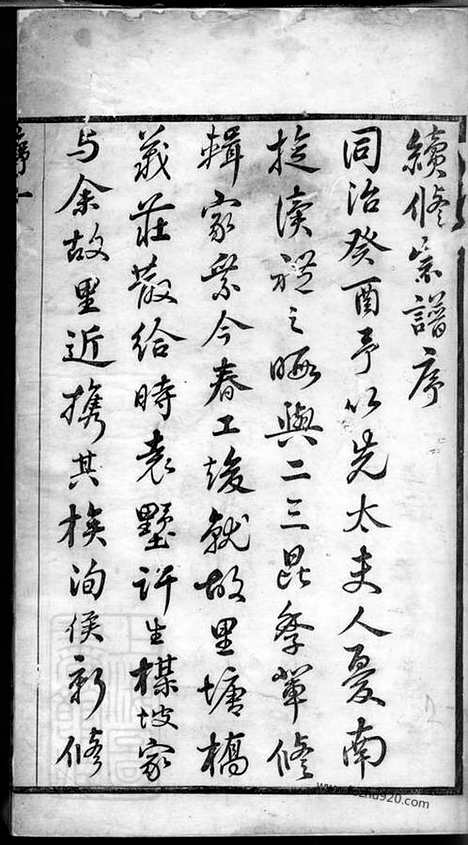 續修宗譜序
同治癸酉予以先太夫人憂南
旋讀禮之暇與二三昆季輩修
輯家乘今春工竣就故里塘橋
義莊散給時袁墅許生楳坡家
与余故里近携其族洵侯新修